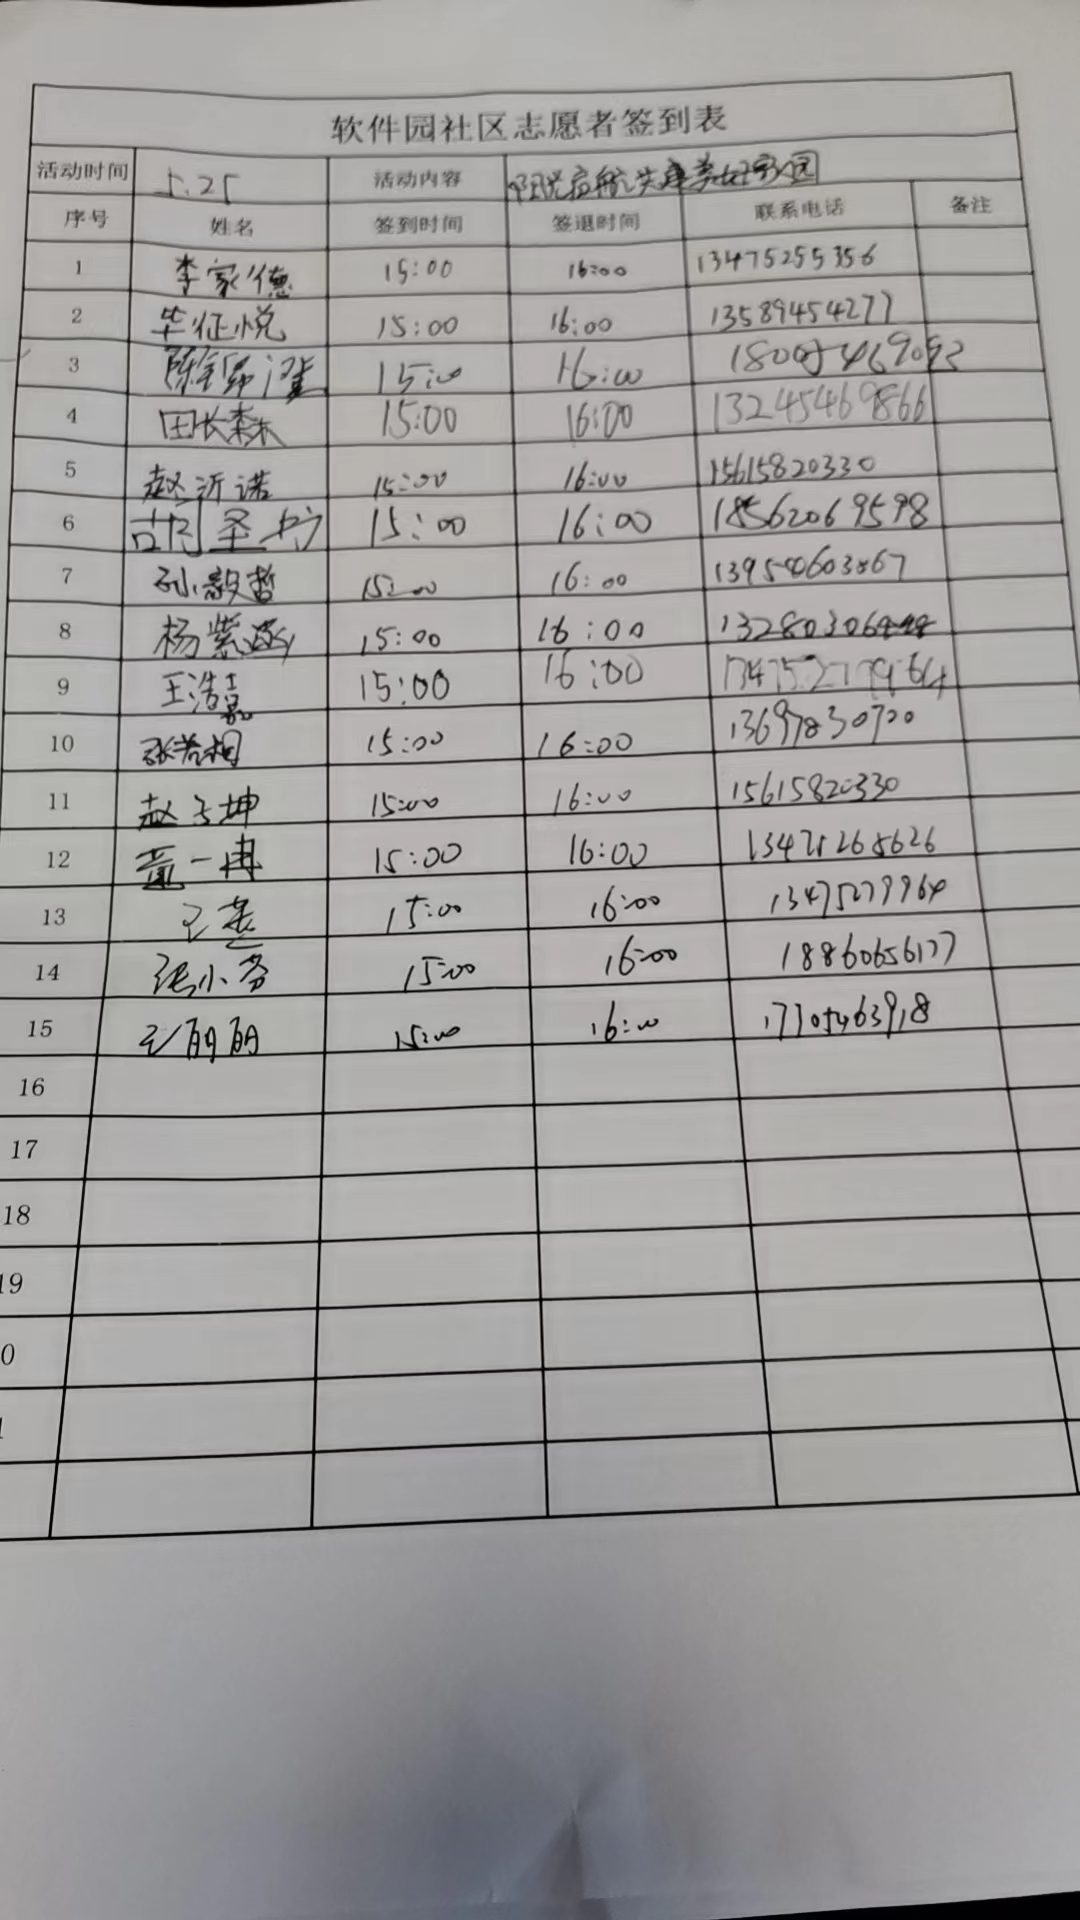 软件园社区志愿者签到表
活动时间 5.25 活动内容 阳光启航,共建美好家园
序号 姓名 签到时间 签退时间 联系电话 备注
1 李家德 15:00 16:00 13475255356
2 毕征悦 15:00 16:00 13589454277
3 15:00 16:00
4 田长森 15:00 16:00 13245469866
5 赵沂诺 15:00 16:00 15615820330
6 胡圣 15:00 16:00 18562069598
7 孙毅哲 15:00 16:00 13954603067
8 杨紫涵 15:00 16:00
9 王浩嘉 15:00 16:00 13475279964
10 张若相 15:00 16:00 13697830720
11 赵子坤 15:00 16:00 15615820330
12 董一冉 15:00 16:00 13475265626
13 王 15:00 16:00 13475279964
14 张小芬 15:00 16:00 18860656177
15 王丽丽 15:00 16:00 17705463918
16
17
18
19
0
1